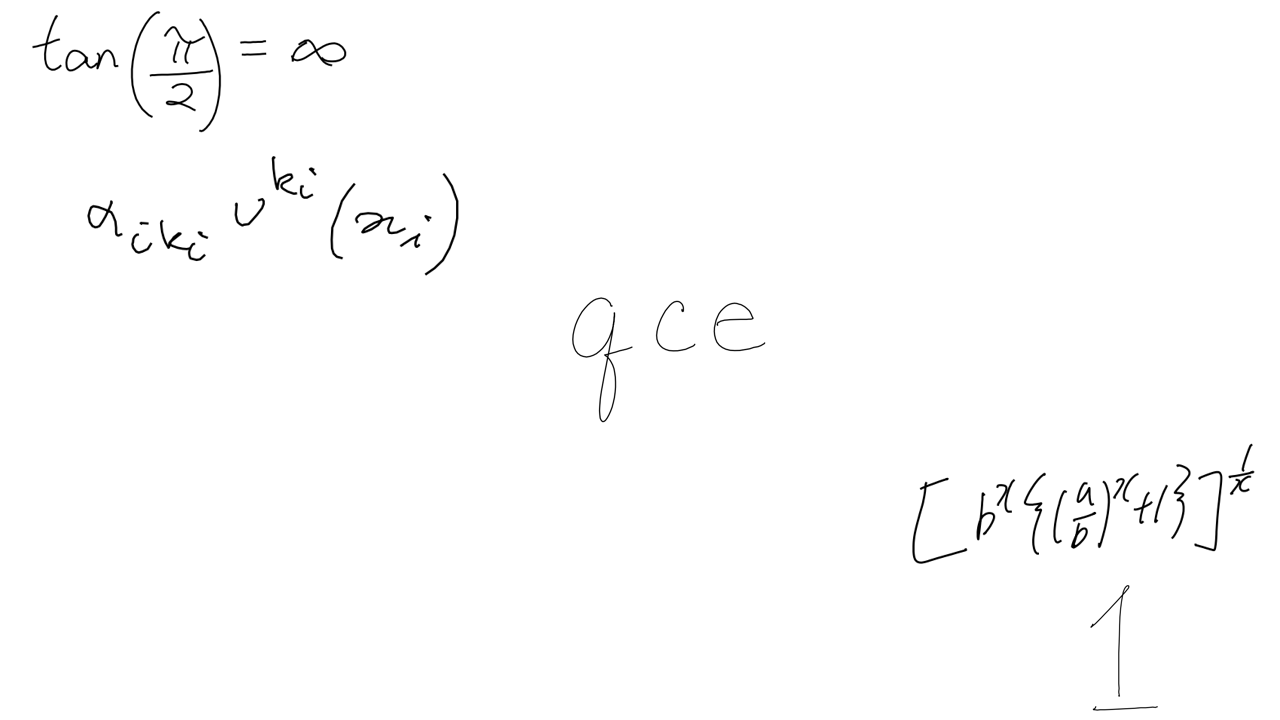 tan(π/2) = ∞
α_{iki} υ^{ki} (x_i)
qce
[b^x{(a/b)^x+1}]^{1/x}
1